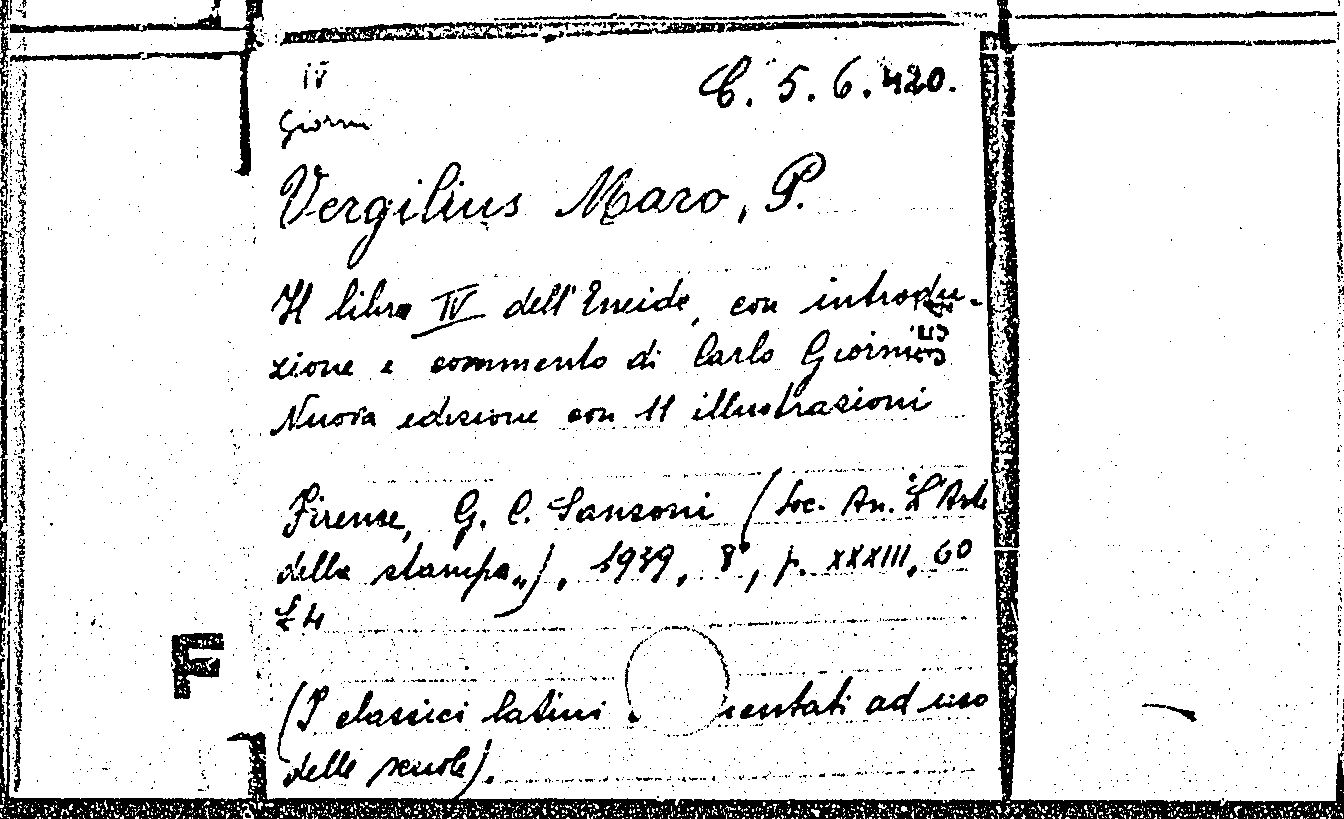 IV
C. 5. 6. 420.
Giorni
Vergilius Maro, P.
Il libro IV dell'Eneide, con introdu-
zione e commento di Carlo Giorni
Nuova edizione con 11 illustrazioni
Firenze, G. C. Sansoni (Soc. An. "L'Arte
della stampa"), 1939, 8°, p. XXXIII, 60
£ 4
F
(I classici latini mentati ad uso
delle scuole).